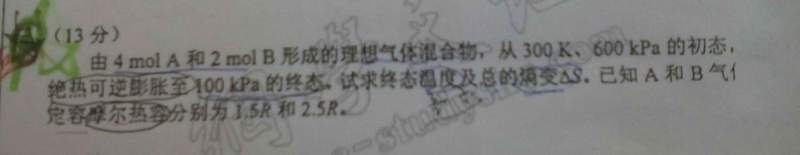 (13 分)
由 4 mol A 和 2 mol B 形成的理想气体混合物，从 300 K、600 kPa 的初态，
绝热可逆膨胀至 100 kPa 的终态。试求终态温度及总的熵变ΔS。已知 A 和 B 气
定容摩尔热容分别为 1.5R 和 2.5R。